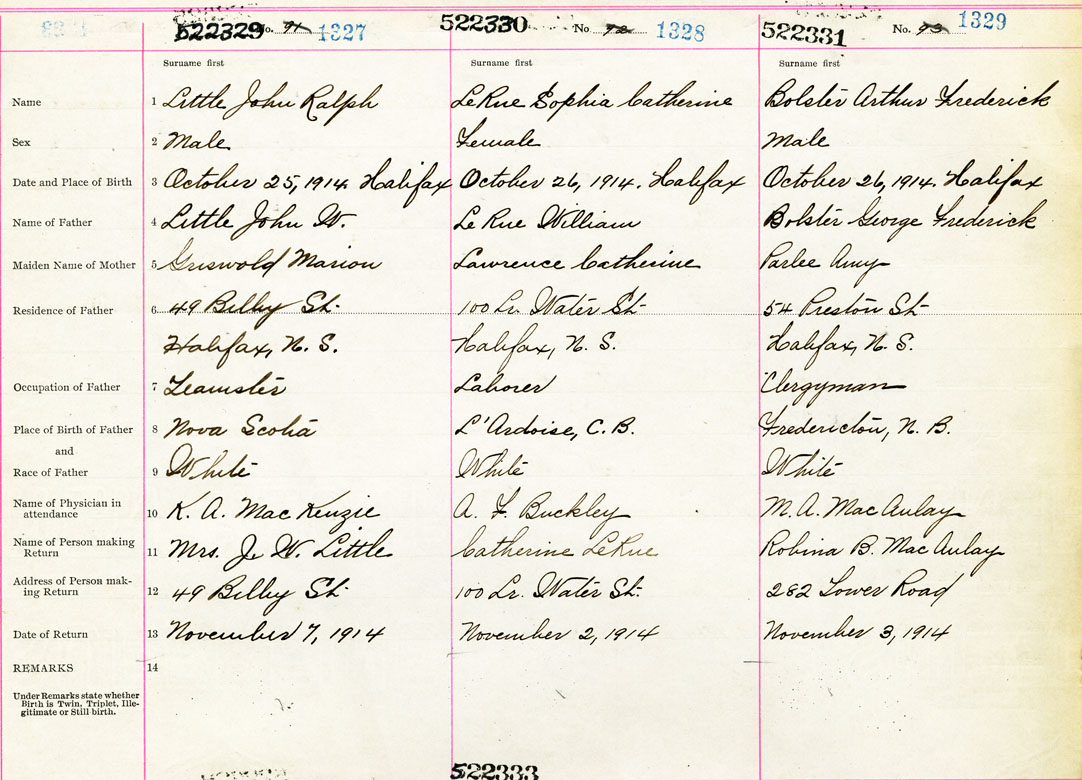 522329 No. 71 1327 522330 No 72 1328 522331 No. 73 1329
Surname first Surname first Surname first
Name 1 Little John Ralph LeRue Sophia Catherine Bolster Arthur Frederick
Sex 2 Male Female Male
Date and Place of Birth 3 October 25, 1914. Halifax October 26, 1914. Halifax October 26, 1914. Halifax
Name of Father 4 Little John W. LeRue William Bolster George Frederick
Maiden Name of Mother 5 Griswold Marion Lawrence Catherine Parlee Amy
Residence of Father 6 49 Bilby St. 100 Lr. Water St. 54 Preston St.
Halifax, N. S. Halifax, N. S. Halifax, N. S.
Occupation of Father 7 Teamster Laborer Clergyman
Place of Birth of Father 8 Nova Scotia L'Ardoise, C. B. Fredericton, N. B.
and
Race of Father 9 White White White
Name of Physician in
attendance 10 K. A. MacKenzie A. F. Buckley M. A. MacAulay
Name of Person making
Return 11 Mrs. J. W. Little Catherine LeRue Robina B. MacAulay
Address of Person mak-
ing Return 12 49 Bilby St. 100 Lr. Water St. 282 Tower Road
Date of Return 13 November 7, 1914 November 2, 1914 November 3, 1914
REMARKS 14
Under Remarks state whether
Birth is Twin, Triplet, Ille-
gitimate or Still birth.
522333